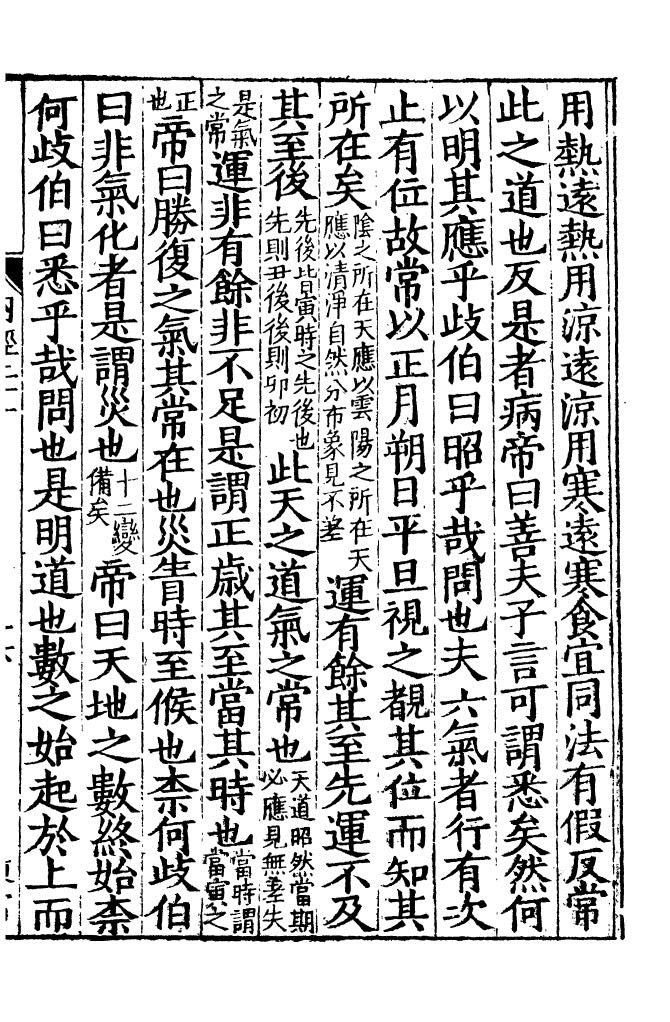 用熱遠熱用涼遠涼用寒遠寒食宜同法有假反常
此之道也反是者病帝曰善夫子言可謂悉矣然何
以明其應乎歧伯曰昭乎哉問也夫六氣者行有次
止有位故常以正月朔日平旦視之覩其位而知其
所在矣陰之所在天應以雲陽之所在天應以清淨自然分布象見不差運有餘其至先運不及
其至後先後皆寅時之先後也先則丑後後則卯初此天之道氣之常也天道昭然當期必應見無差失
是氣之常運非有餘非不足是謂正歲其至當其時也當時謂當寅之
正也帝曰勝復之氣其常在也災眚時至候也柰何歧伯
曰非氣化者是謂災也十二變備矣帝曰天地之數終始柰
何歧伯曰悉乎哉問也是明道也數之始起於上而